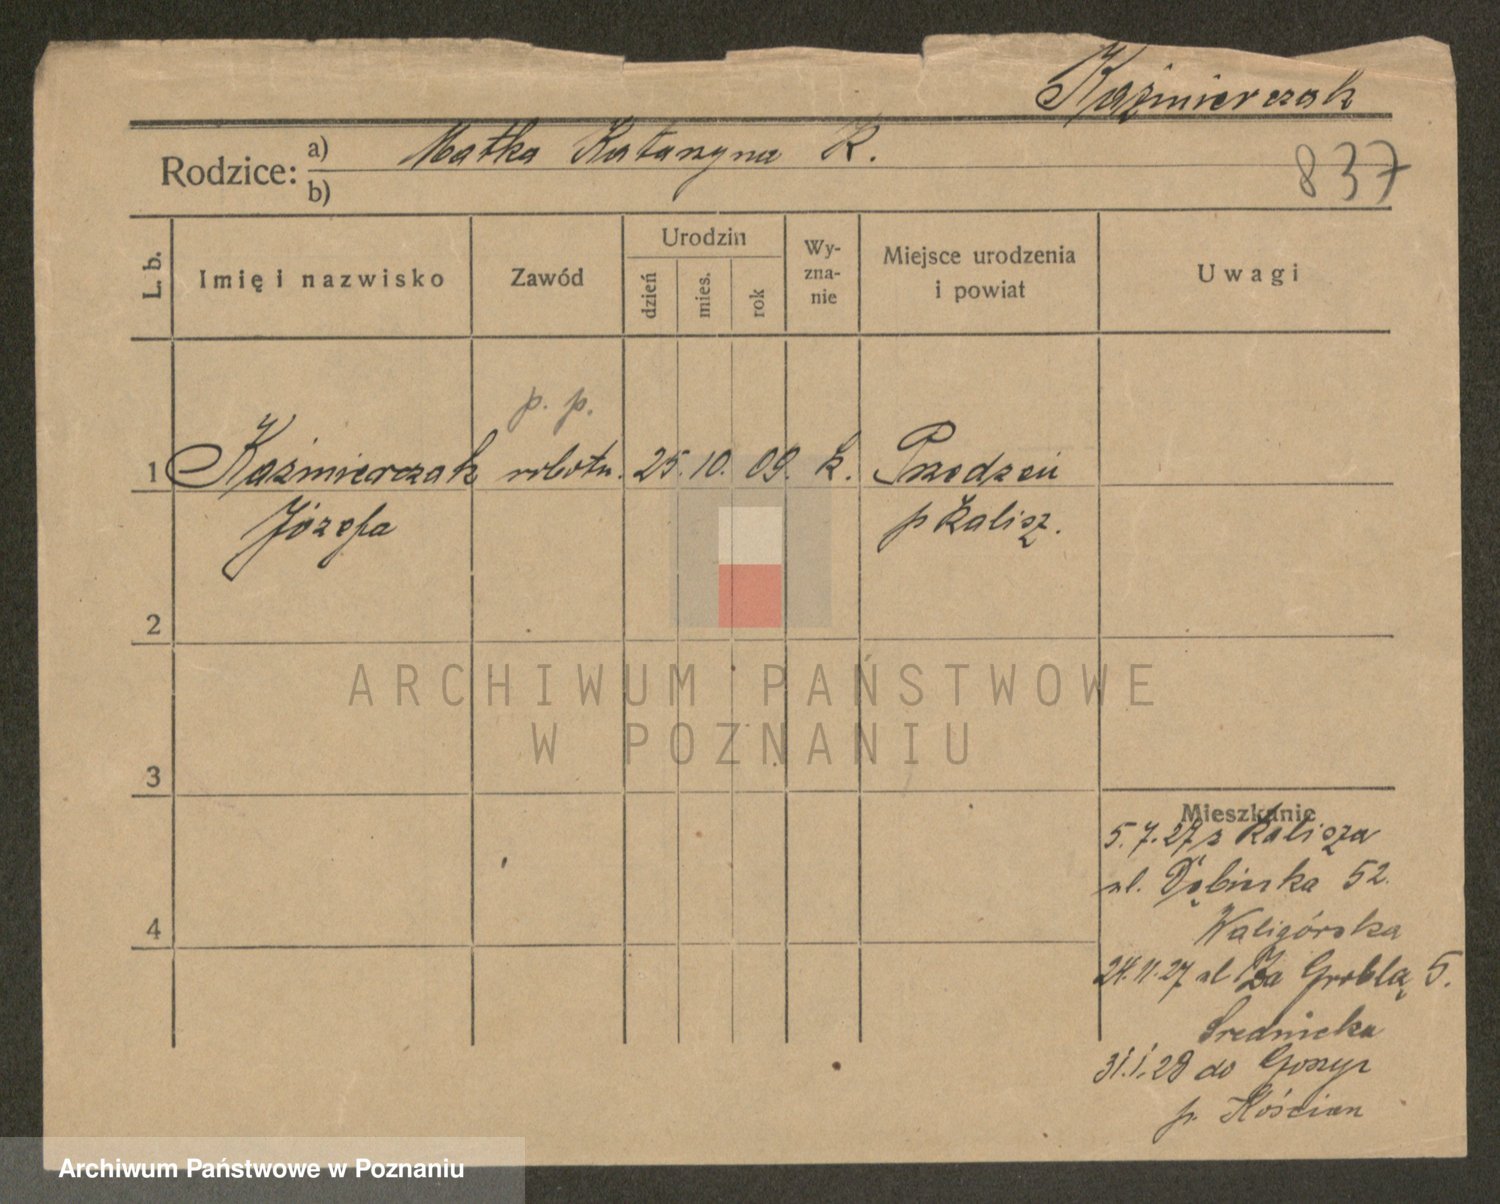 Kaźmierczak
Rodzice: a) Matka Katarzyna K.
b)
837
L. b.
Imię i nazwisko
Zawód
Urodzin
dzień
mies.
rok
Wy-
zna-
nie
Miejsce urodzenia
i powiat
Uwagi
p. p.
1 Kaźmierczak robotn. 25. 10. 09. k.
Józefa
p Kalisz.
2
ARCHIWUM PAŃSTWOWE
W POZNANIU
3
Mieszkanie
5.7.27 z Kalisza
ul. Dębińska 52.
Waligórska
4
24.11.27 ul Za Groblą 5.
Średnicka
31.1.28 do
p. Kościan
Archiwum Państwowe w Poznaniu